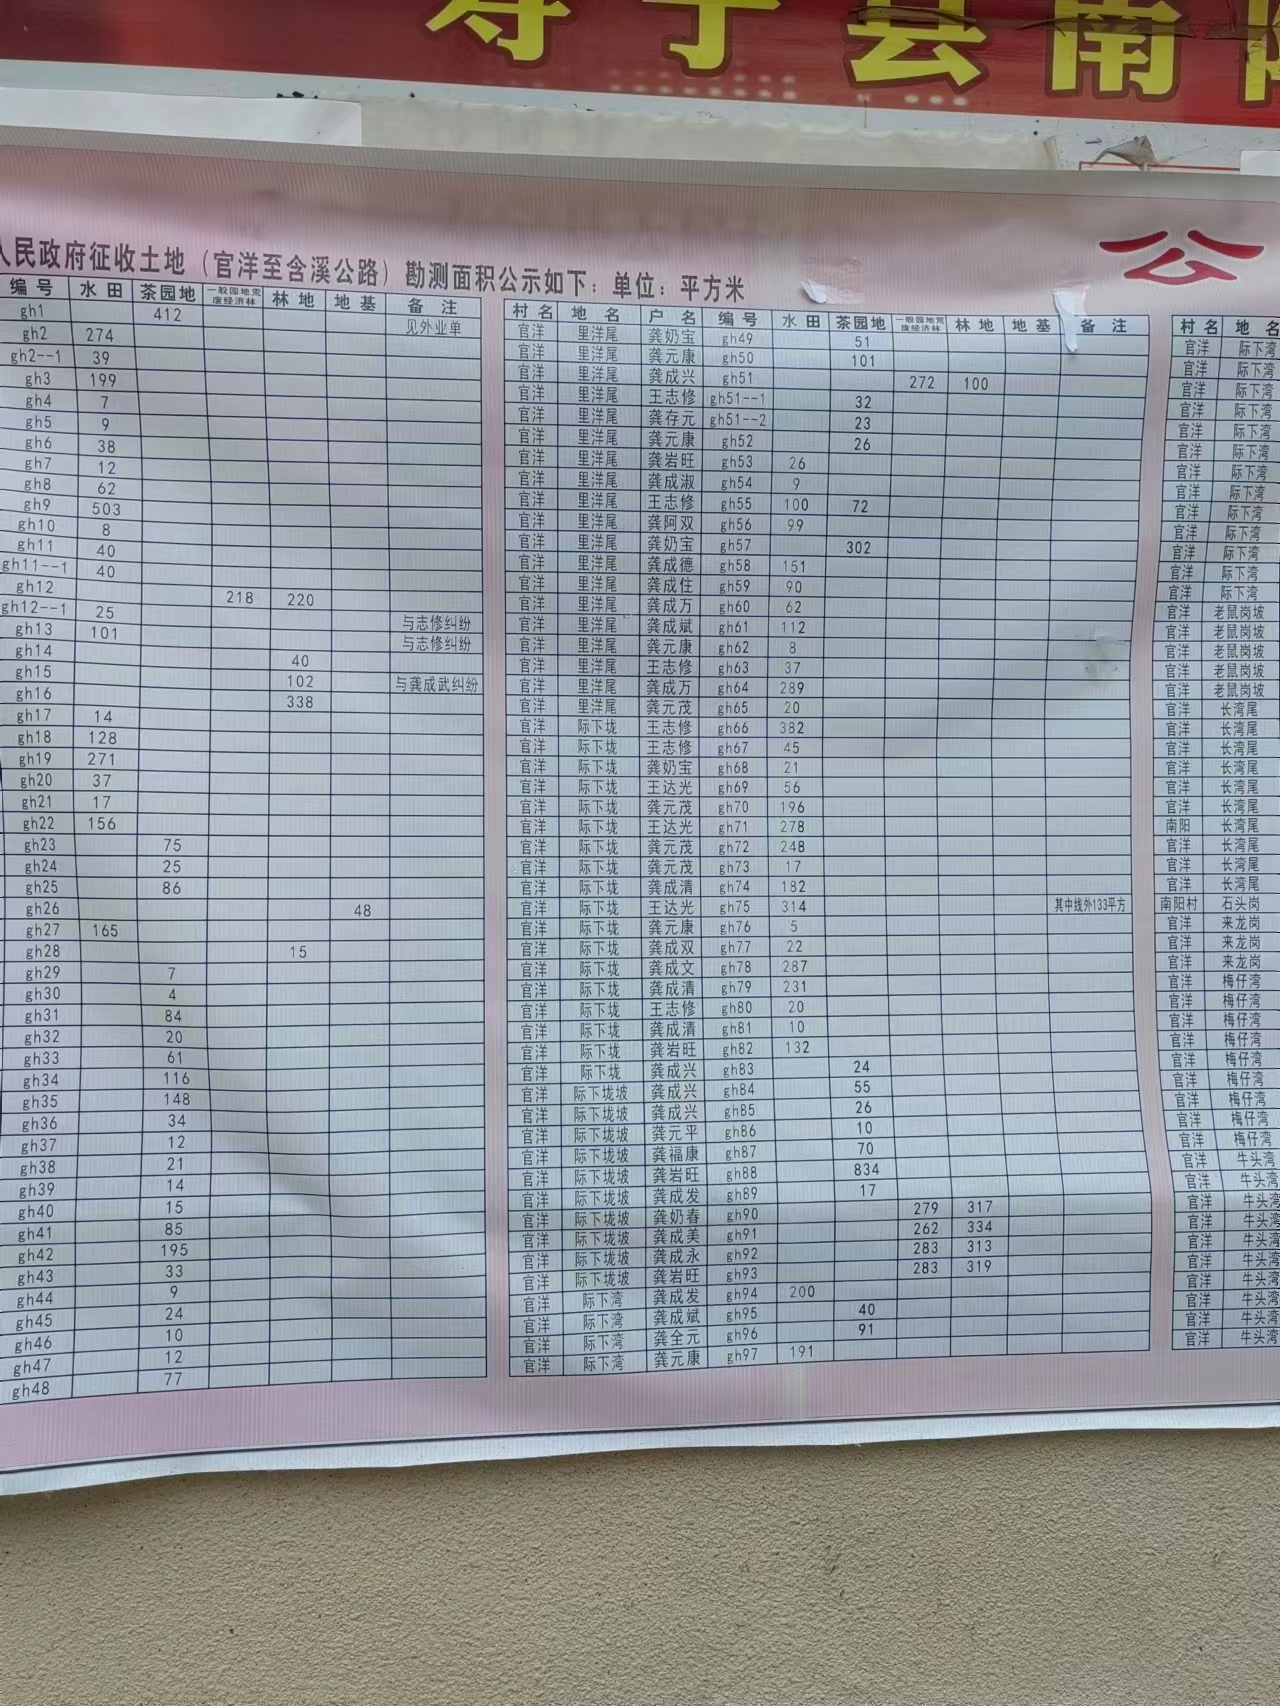 寿宁县南
公
人民政府征收土地（官洋至含溪公路）勘测面积公示如下：单位：平方米
编号 水田 茶园地 一般园地荒废经济林 林地 地基 备注
gh1 412 见外业单
gh2 274
gh2--1 39
gh3 199
gh4 7
gh5 9
gh6 38
gh7 12
gh8 62
gh9 503
gh10 8
gh11 40
gh11--1 40
gh12 218 220
gh12--1 25 与志修纠纷
gh13 101 与志修纠纷
gh14 40
gh15 102 与龚成武纠纷
gh16 338
gh17 14
gh18 128
gh19 271
gh20 37
gh21 17
gh22 156
gh23 75
gh24 25
gh25 86
gh26 48
gh27 165
gh28 15
gh29 7
gh30 4
gh31 84
gh32 20
gh33 61
gh34 116
gh35 148
gh36 34
gh37 12
gh38 21
gh39 14
gh40 15
gh41 85
gh42 195
gh43 33
gh44 9
gh45 24
gh46 10
gh47 12
gh48 77
村名 地名 户名 编号 水田 茶园地 一般园地荒废经济林 林地 地基 备注
官洋 里洋尾 龚奶宝 gh49 51
官洋 里洋尾 龚元康 gh50 101
官洋 里洋尾 龚成兴 gh51 272 100
官洋 里洋尾 王志修 gh51--1 32
官洋 里洋尾 龚存元 gh51--2 23
官洋 里洋尾 龚元康 gh52 26
官洋 里洋尾 龚岩旺 gh53 26
官洋 里洋尾 龚成淑 gh54 9
官洋 里洋尾 王志修 gh55 100 72
官洋 里洋尾 龚阿双 gh56 99
官洋 里洋尾 龚奶宝 gh57 302
官洋 里洋尾 龚成德 gh58 151
官洋 里洋尾 龚成住 gh59 90
官洋 里洋尾 龚成万 gh60 62
官洋 里洋尾 龚成斌 gh61 112
官洋 里洋尾 龚元康 gh62 8
官洋 里洋尾 王志修 gh63 37
官洋 里洋尾 龚成万 gh64 289
官洋 里洋尾 龚元茂 gh65 20
官洋 际下垅 王志修 gh66 382
官洋 际下垅 王志修 gh67 45
官洋 际下垅 龚奶宝 gh68 21
官洋 际下垅 王达光 gh69 56
官洋 际下垅 龚元茂 gh70 196
官洋 际下垅 王达光 gh71 278
官洋 际下垅 龚元茂 gh72 248
官洋 际下垅 龚元茂 gh73 17
官洋 际下垅 龚成清 gh74 182
官洋 际下垅 王达光 gh75 314 其中线外133平方
官洋 际下垅 龚元康 gh76 5
官洋 际下垅 龚成双 gh77 22
官洋 际下垅 龚成文 gh78 287
官洋 际下垅 龚成清 gh79 231
官洋 际下垅 王志修 gh80 20
官洋 际下垅 龚成清 gh81 10
官洋 际下垅 龚岩旺 gh82 132
官洋 际下垅 龚成兴 gh83 24
官洋 际下垅坡 龚成兴 gh84 55
官洋 际下垅坡 龚成兴 gh85 26
官洋 际下垅坡 龚元平 gh86 10
官洋 际下垅坡 龚福康 gh87 70
官洋 际下垅坡 龚岩旺 gh88 834
官洋 际下垅坡 龚成发 gh89 17
官洋 际下垅坡 龚奶春 gh90 279 317
官洋 际下垅坡 龚成美 gh91 262 334
官洋 际下垅坡 龚成永 gh92 283 313
官洋 际下垅坡 龚岩旺 gh93 283 319
官洋 际下湾 龚成发 gh94 200
官洋 际下湾 龚成斌 gh95 40
官洋 际下湾 龚全元 gh96 91
官洋 际下湾 龚元康 gh97 191
村名 地名
官洋 际下湾
官洋 际下湾
官洋 际下湾
官洋 际下湾
官洋 际下湾
官洋 际下湾
官洋 际下湾
官洋 际下湾
官洋 际下湾
官洋 际下湾
官洋 际下湾
官洋 际下湾
官洋 际下湾
官洋 老鼠岗坡
官洋 老鼠岗坡
官洋 老鼠岗坡
官洋 老鼠岗坡
官洋 老鼠岗坡
官洋 长湾尾
官洋 长湾尾
官洋 长湾尾
官洋 长湾尾
官洋 长湾尾
官洋 长湾尾
南阳 长湾尾
官洋 长湾尾
官洋 长湾尾
官洋 长湾尾
南阳村 石头岗
官洋 来龙岗
官洋 来龙岗
官洋 来龙岗
官洋 梅仔湾
官洋 梅仔湾
官洋 梅仔湾
官洋 梅仔湾
官洋 梅仔湾
官洋 梅仔湾
官洋 梅仔湾
官洋 梅仔湾
官洋 梅仔湾
官洋 牛头湾
官洋 牛头湾
官洋 牛头湾
官洋 牛头湾
官洋 牛头湾
官洋 牛头湾
官洋 牛头湾
官洋 牛头湾
官洋 牛头湾
官洋 牛头湾